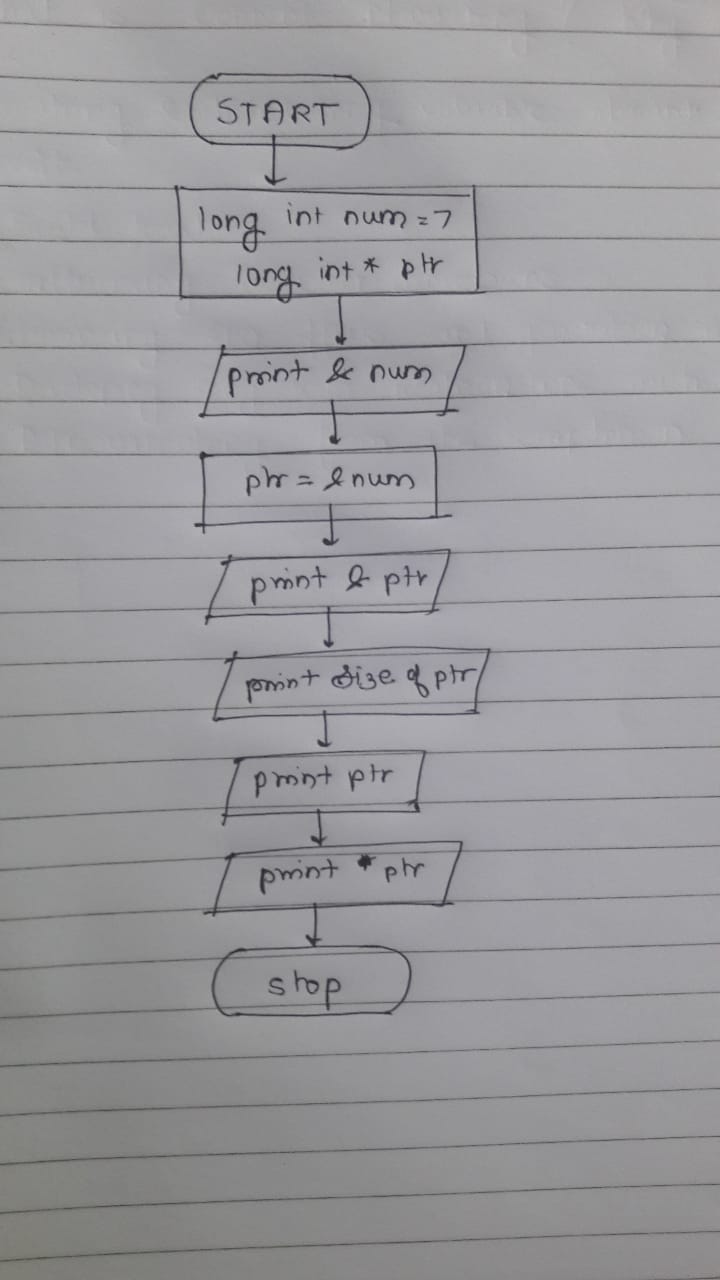 START
long int num = 7
long int * ptr
print & num
ptr = & num
print & ptr
print size of ptr
print ptr
print * ptr
stop